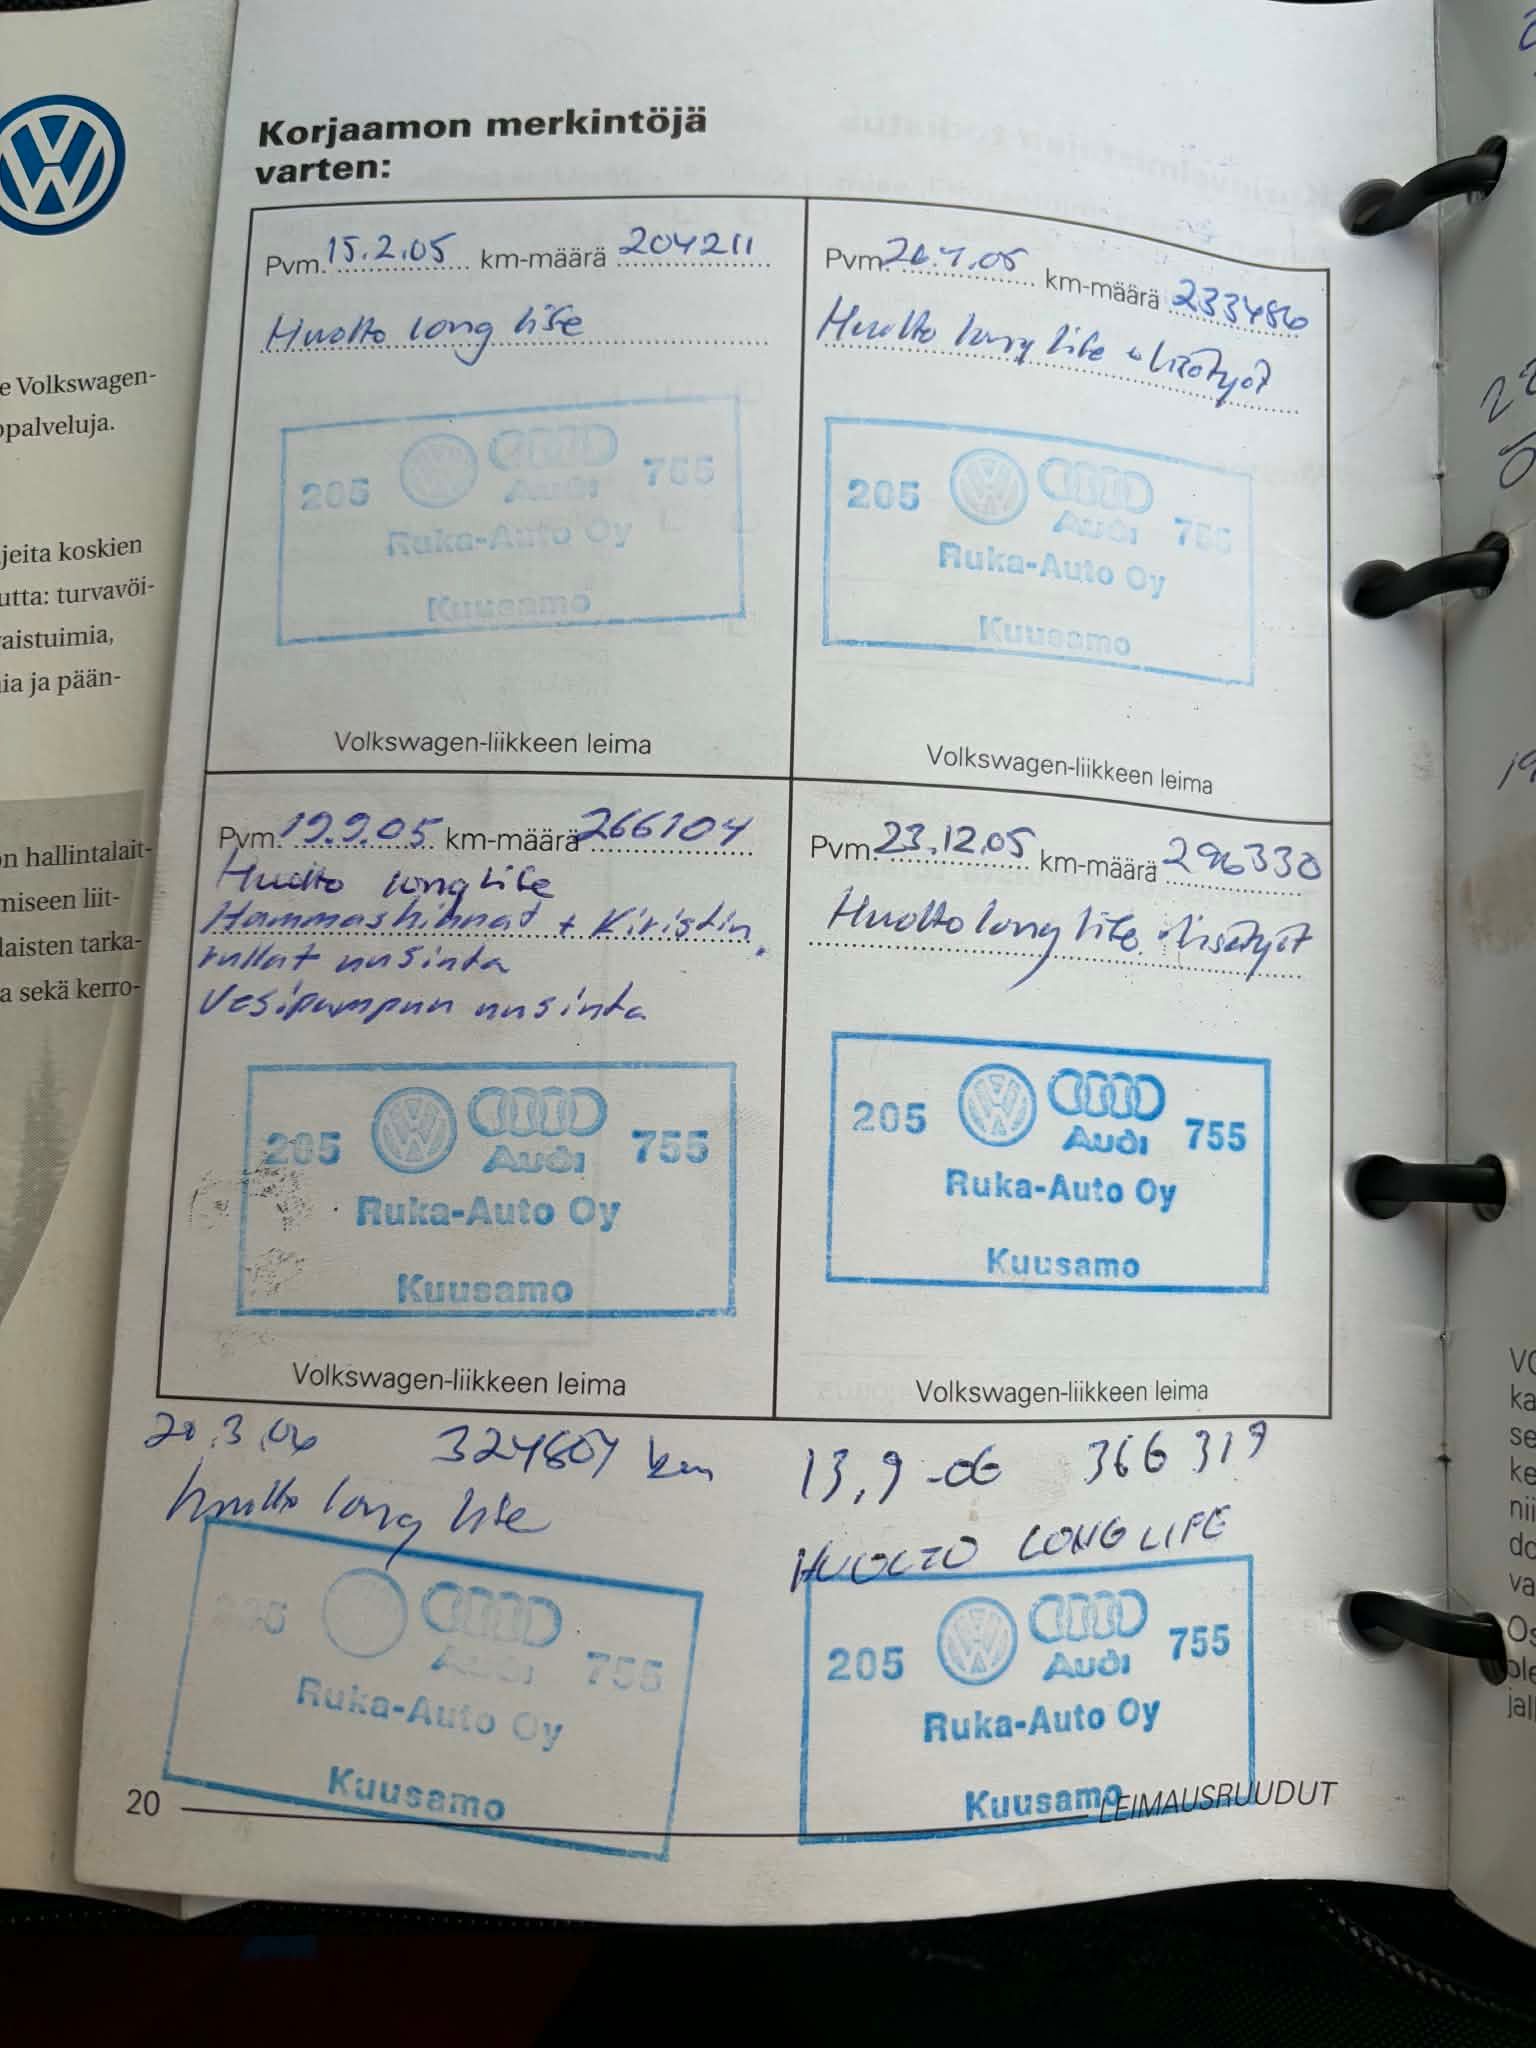 e Volkswagen-
opalveluja.
jeita koskien
utta: turvavöi-
vaistuimia,
ia ja pään-
on hallintalait-
miseen liit-
laisten tarka-
a sekä kerro-
Korjaamon merkintöjä
varten:
Pvm. 15.2.05 km-määrä 204211
Huolto long life
205 Audi 755
Ruka-Auto Oy
Kuusamo
Volkswagen-liikkeen leima
Pvm. km-määrä 233486
Huolto long life + lisätyöt
205 Audi 755
Ruka-Auto Oy
Kuusamo
Volkswagen-liikkeen leima
Pvm. 19.9.05 km-määrä 266104
Huolto longlife
Hammashihnat + Kiristin
rullat uusinta
Vesipumpun uusinta
205 Audi 755
Ruka-Auto Oy
Kuusamo
Volkswagen-liikkeen leima
Pvm. 23.12.05 km-määrä 296330
Huolto long life + lisätyöt
205 Audi 755
Ruka-Auto Oy
Kuusamo
Volkswagen-liikkeen leima
km
huolto long life
205 Audi 755
Ruka-Auto Oy
Kuusamo
13,9-06 366319
HUOLTO LONGLIFE
205 Audi 755
Ruka-Auto Oy
Kuusamo
20 LEIMAUSRUUDUT